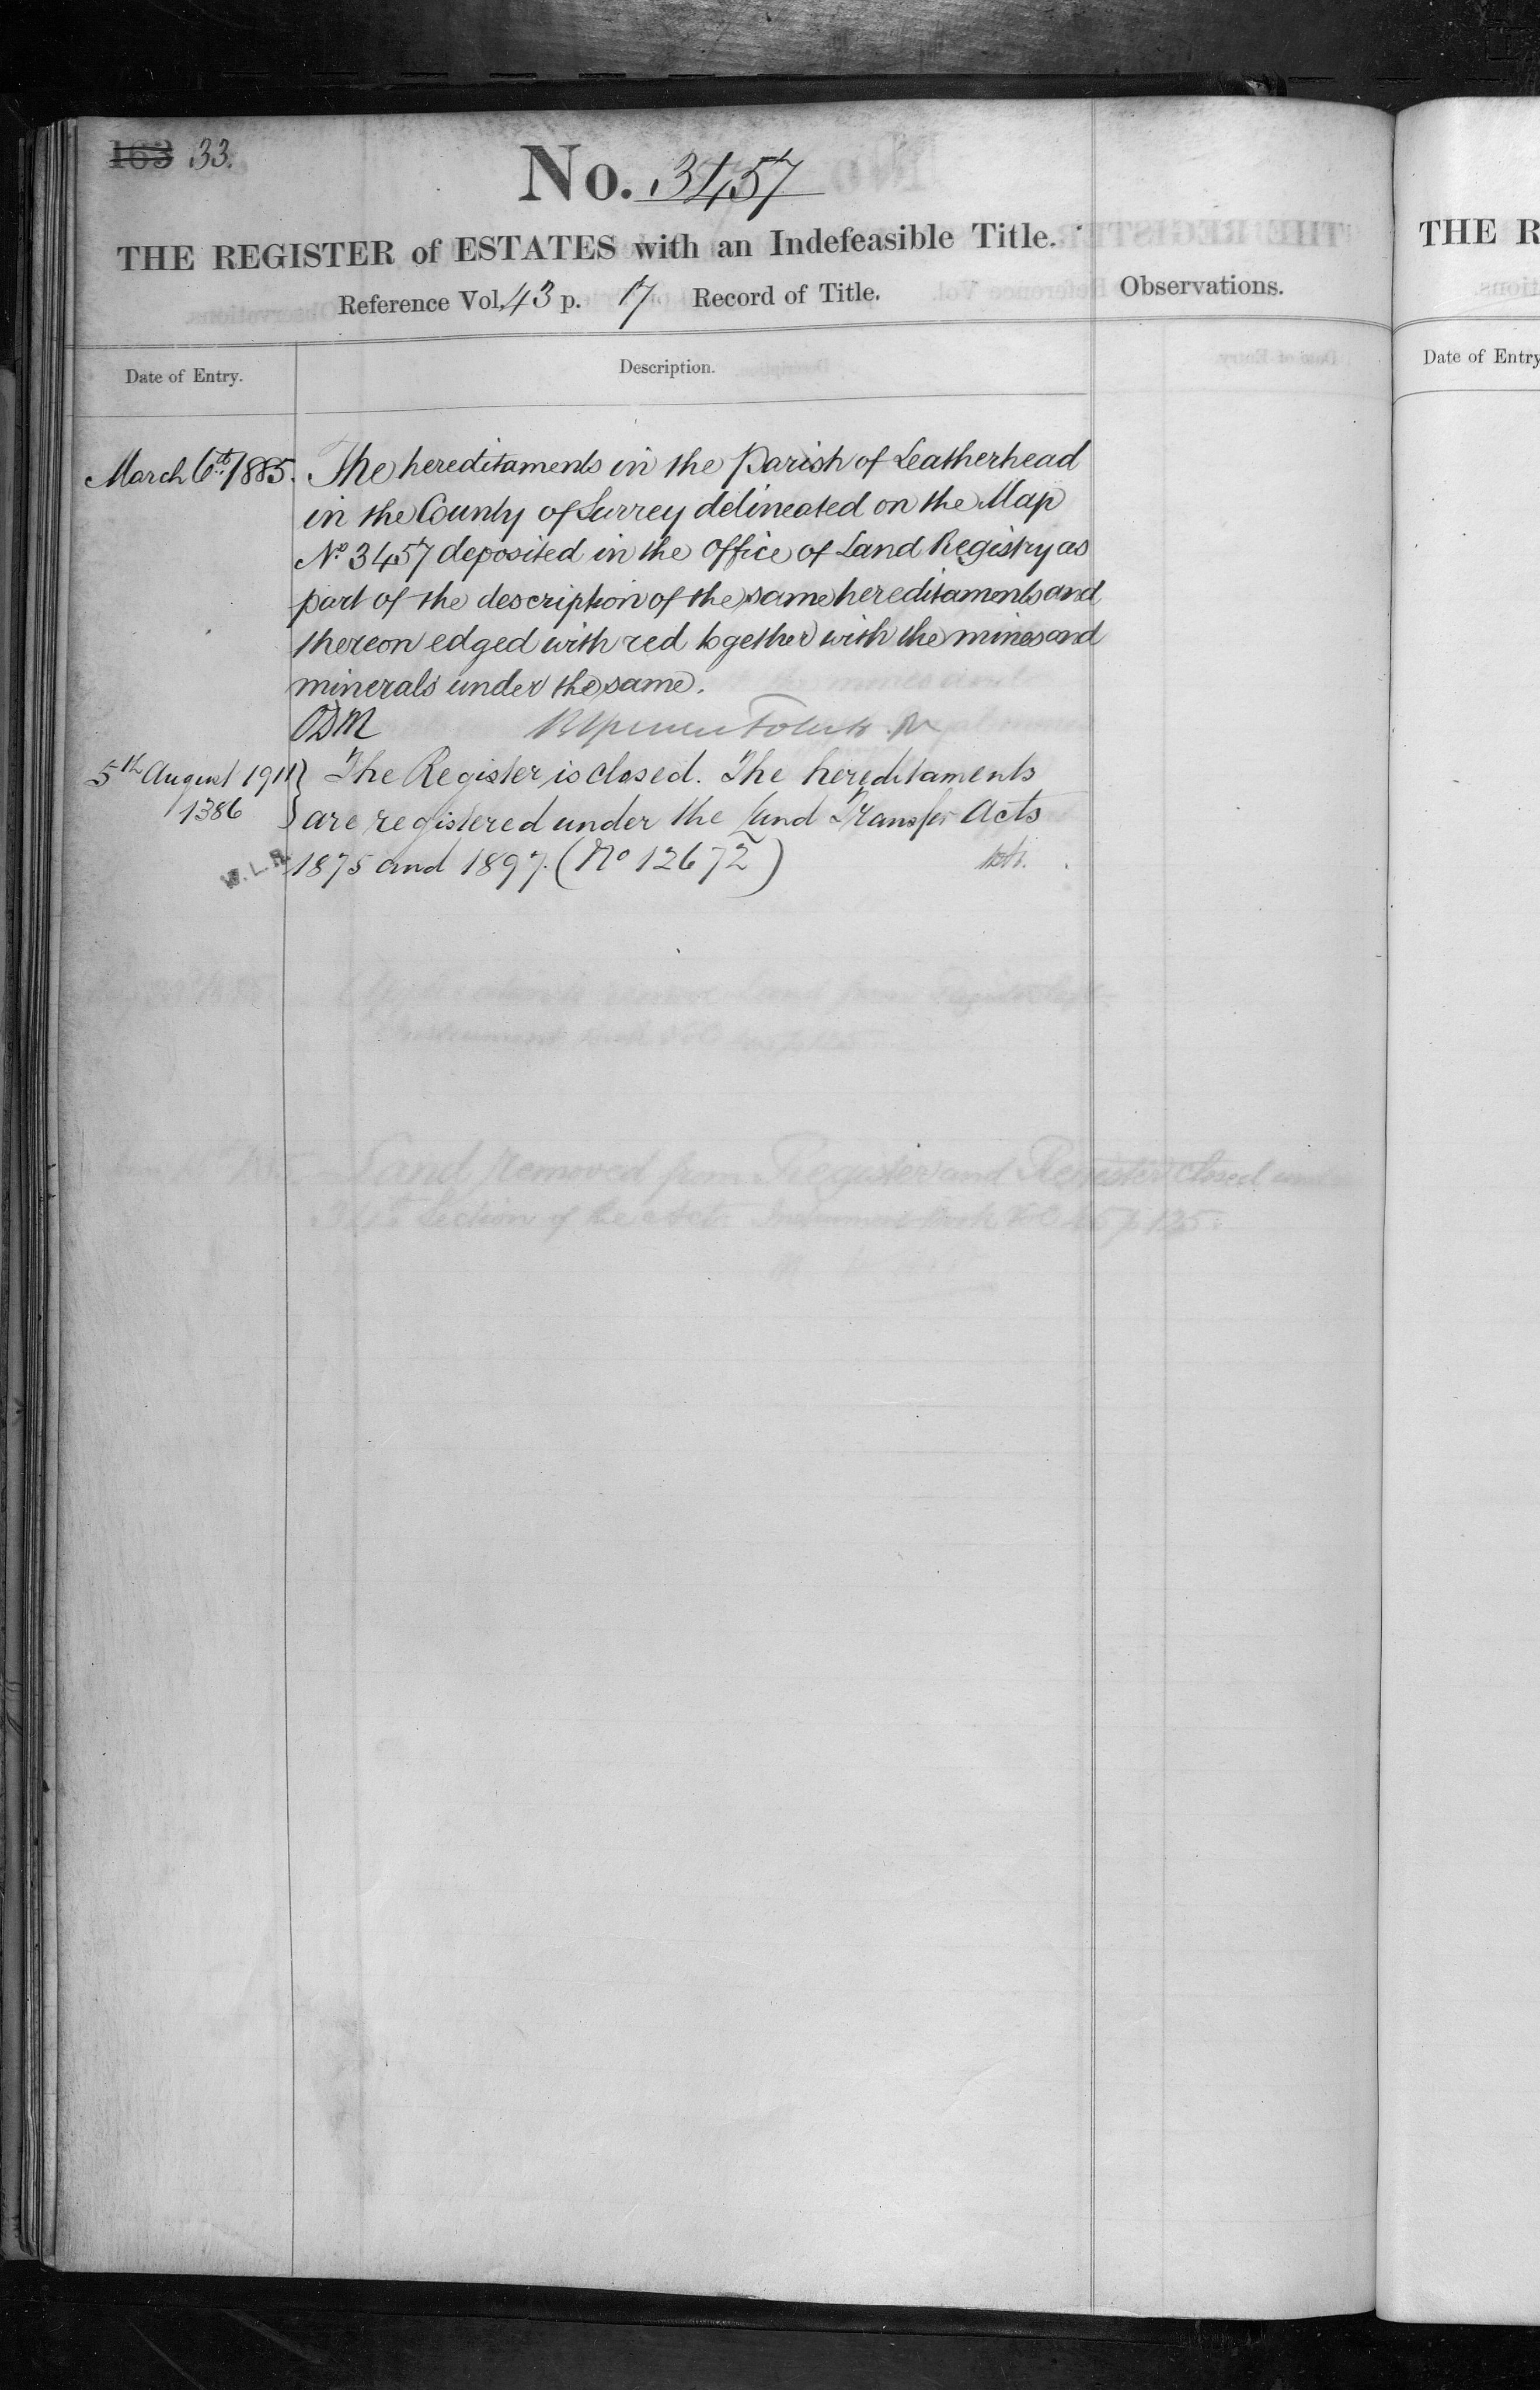 163 33.
No. 3457
THE REGISTER of ESTATES with an Indefeasible Title.
Reference Vol. 43 p. 17 Record of Title.
Observations.
Date of Entry.
Description.
March 6th 1885. The hereditaments in the Parish of Leatherhead
in the County of Surrey delineated on the Map
No 3457 deposited in the Office of Land Registry as
part of the description of the same hereditaments and
thereon edged with red together with the mines and
minerals under the same.
ODM
5th August 1911 } The Register is closed. The hereditaments
1386 } are registered under the Land Transfer Acts
W.L.R. 1875 and 1897. (No 12672)
Land removed from Register and Register closed
Section of the Act.
THE R
Date of Entry